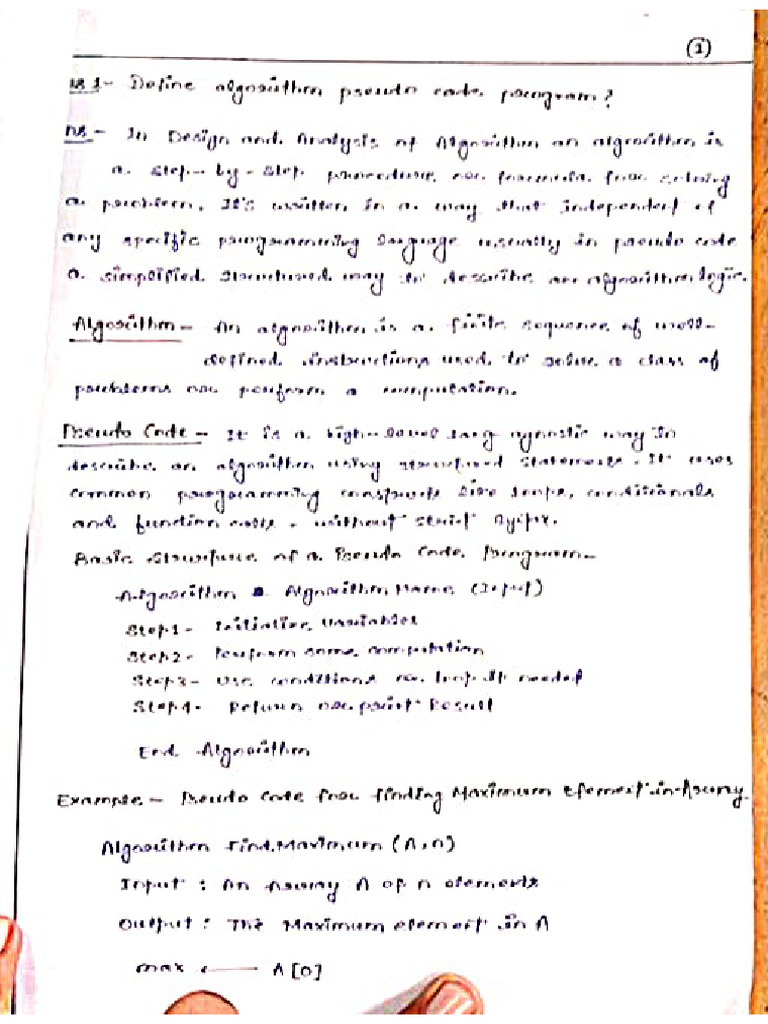 (1)
Ques 1- Define algorithm pseudo code program?
Ans - In Design and Analysis of Algorithm an algorithm is
a step-by-step procedure or formula for solving
a problem. It's written in a way that independent of
any specific programming language usually in pseudo code
a simplified structured way to describe an algorithm logic.
Algorithm - An algorithm is a finite sequence of well-
defined instructions used to solve a class of
problems or perform a computation.
Pseudo Code - It is a high-level lang agnostic way to
describe an algorithm using structured statements. It uses
common programming constructs like loops, conditionals
and function calls. without strict
Basic Structure of a Pseudo Code Program-
Algorithm Algorithm Name (Input)
Step1- Initialize Variables
Step2- Perform some computation
Step3- Use conditions or loop if needed
Step4- Return or print Result
End Algorithm
Example- Pseudo Code for finding Maximum Element in Array
Algorithm Find.Maximum (A,n)
Input : An Array A of n elements
Output : The Maximum element in A
max ← A[0]